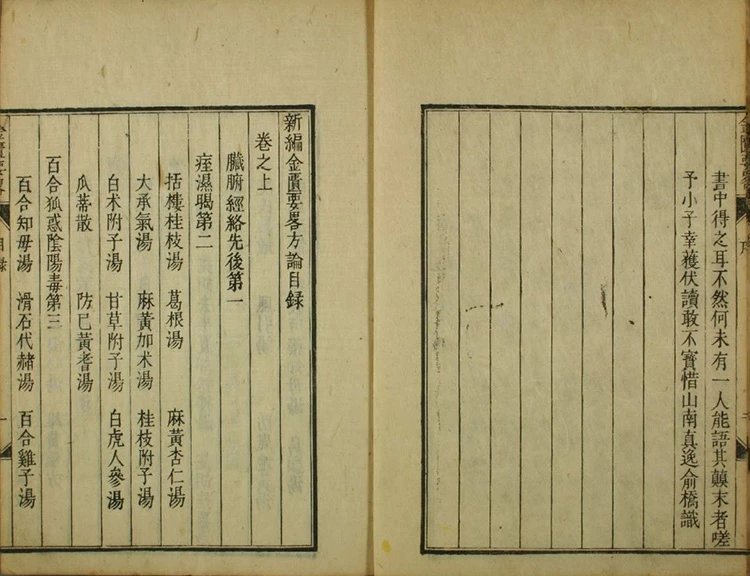 書中得之耳不然何未有一人能語其顛末者嗟
予小子幸獲伏讀敢不寶惜山南真逸俞橋識
序
新編金匱要畧方論目録
卷之上
臟腑經絡先後第一
痓濕暍第二
括樓桂枝湯 葛根湯 麻黃杏仁湯
大承氣湯 麻黃加术湯 桂枝附子湯
白术附子湯 甘草附子湯 白虎人參湯
瓜蒂散 防已黃耆湯
百合狐惑陰陽毒第三
百合知毋湯 滑石代赭湯 百合雞子湯
目録
一